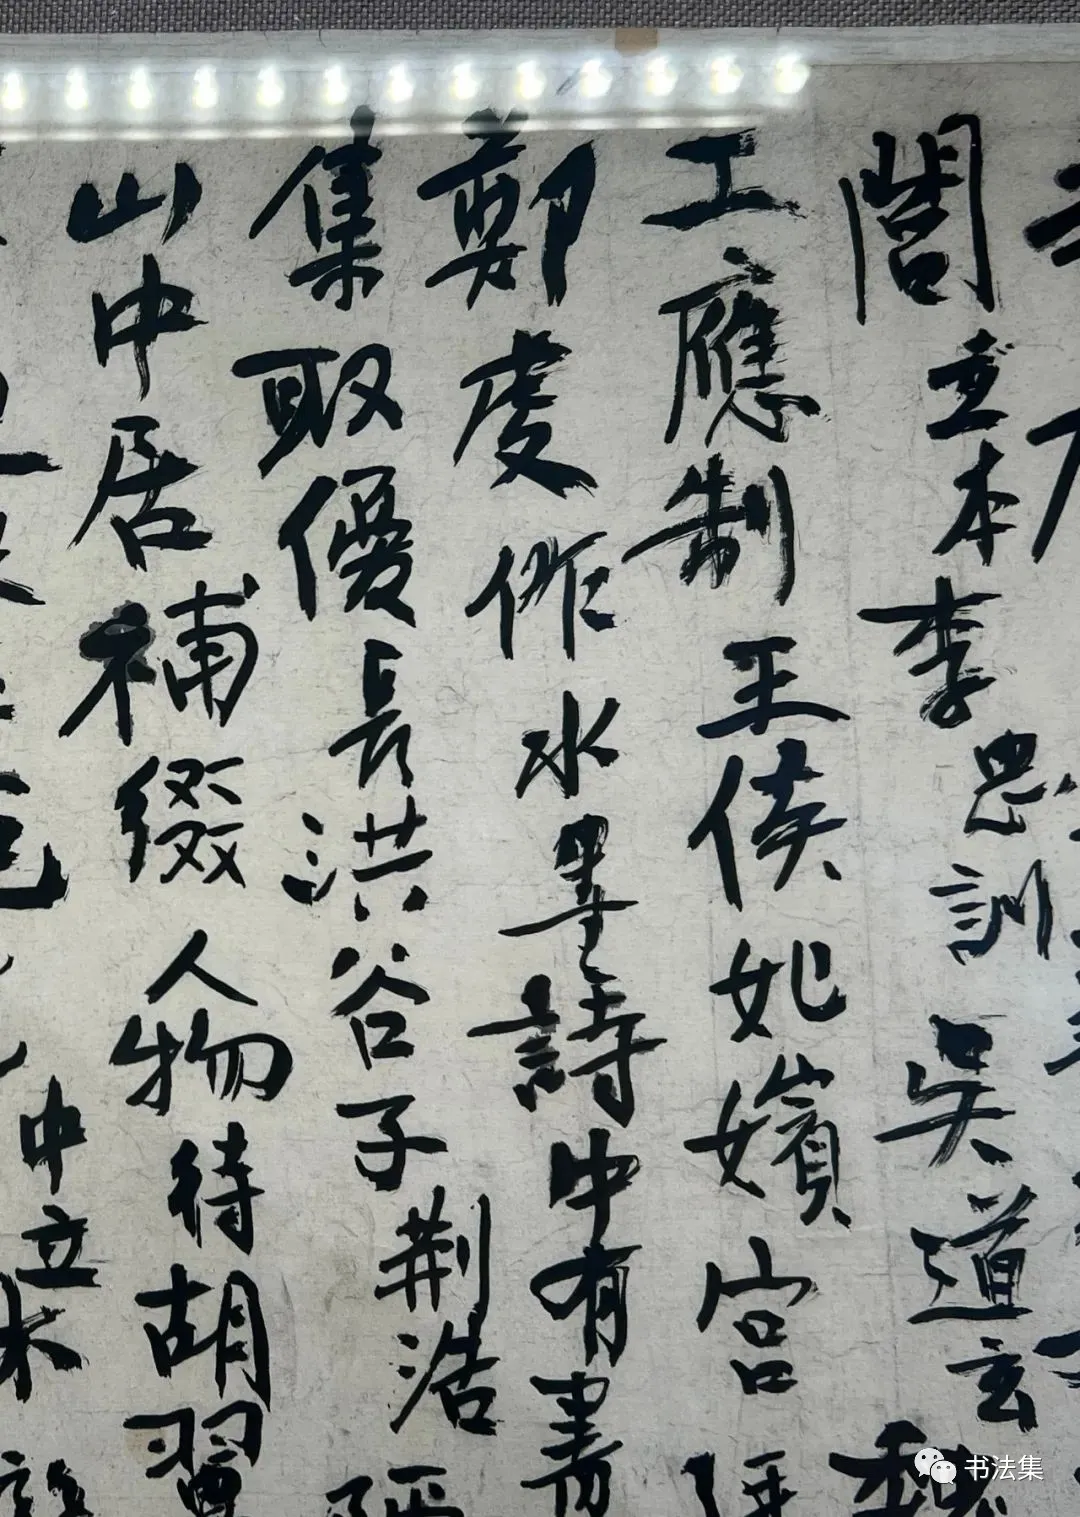 閻立本李思訓吳道玄魏
工應制王侯妃嬪宮
鄭虔作水墨詩中有書
集取優長洪谷子荆浩
山中居補綴人物待胡翼
中立
书法集